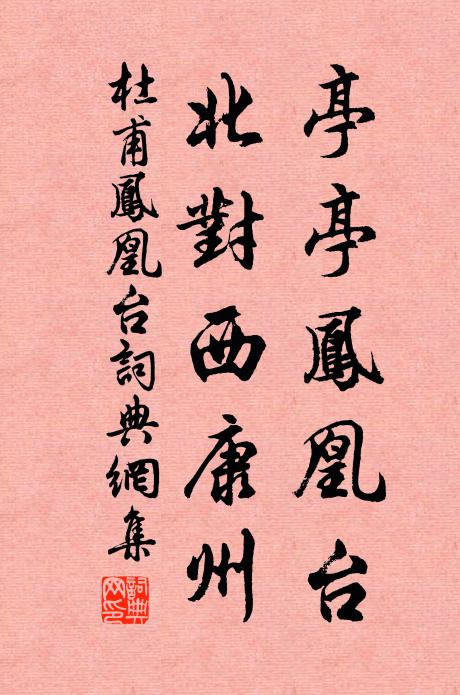 亭亭鳳凰台
北對西康州
杜甫鳳凰台詞典網集
詞典網印